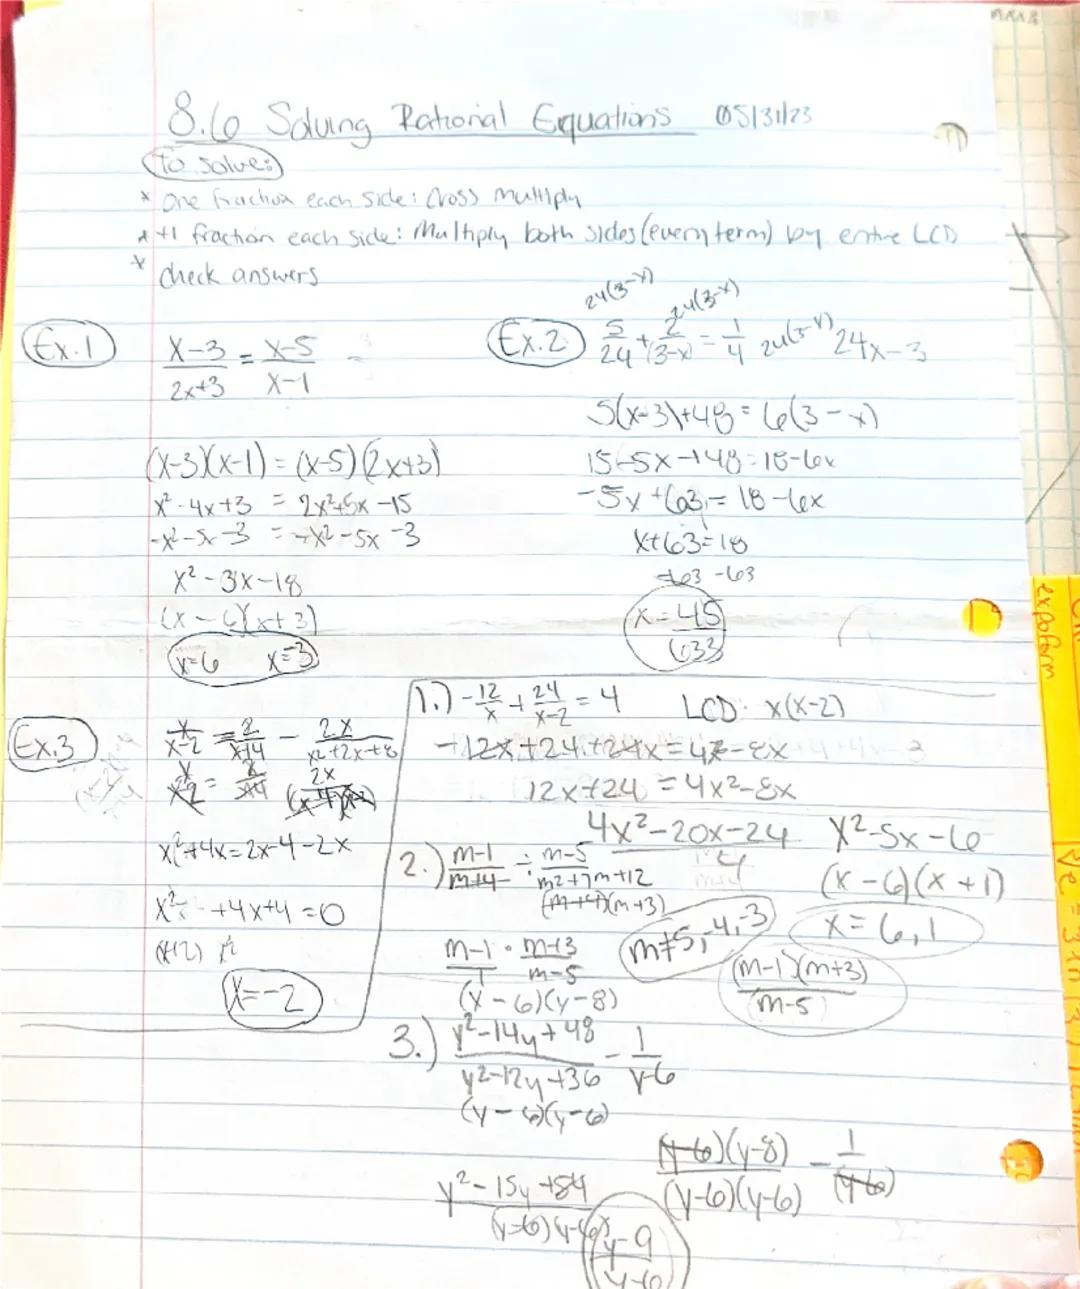 8.6 Solving Rational Equations 05/31/23
To solve:
* One fraction each side: Cross multiply
* +1 fraction each side: Multiply both sides (every term) by entire LCD
* Check answers
Ex.1
x-3/2x+3 = x-5/x-1
(x-3)(x-1) = (x-5)(2x+3)
x²-4x+3 = 2x²+5x-15
-x²-5x-3 = -x²-5x-3
x²-3x-18
(x-6)(x+3)
x=6 x=-3
Ex.2
24(3-x) 24(3-x)
5/24 + 2/(3-x) = 1/4 24(3-x) 24x-3
5(x-3)+48 = 6(3-x)
15-5x+48=18-6x
-5x+63=18-6x
x+63=18
-63 -63
x=-45
633
Ex.3
x/x-2 = 2/x+4 - 2x/x²+2x+8
x²+4x=2x-4-2x
x²+4x+4=0
x=-2
1.) -12/x + 24/x-2 = 4 LCD: x(x-2)
-12x+24+24x=4x²-8x
12x+24=4x²-8x
4x²-20x-24 x²-5x-6
4 (x-6)(x+1)
x=6,1
2.) m-1/m+4 ÷ m-5/m²+7m+12
(m+4)(m+3)
m≠5,-4,-3
m-1/1 · m+3/m-5
(m-1)(m+3)
(m-5)
(y-6)(y-8)
3.) y²-14y+48/y²-12y+36 - 1/y-6
(y-6)(y-6)
(y-6)(y-8)/(y-6)(y-6) - 1/(y-6)
y²-15y+54
(y-6)(y-6)
y-9
y-6
expoform